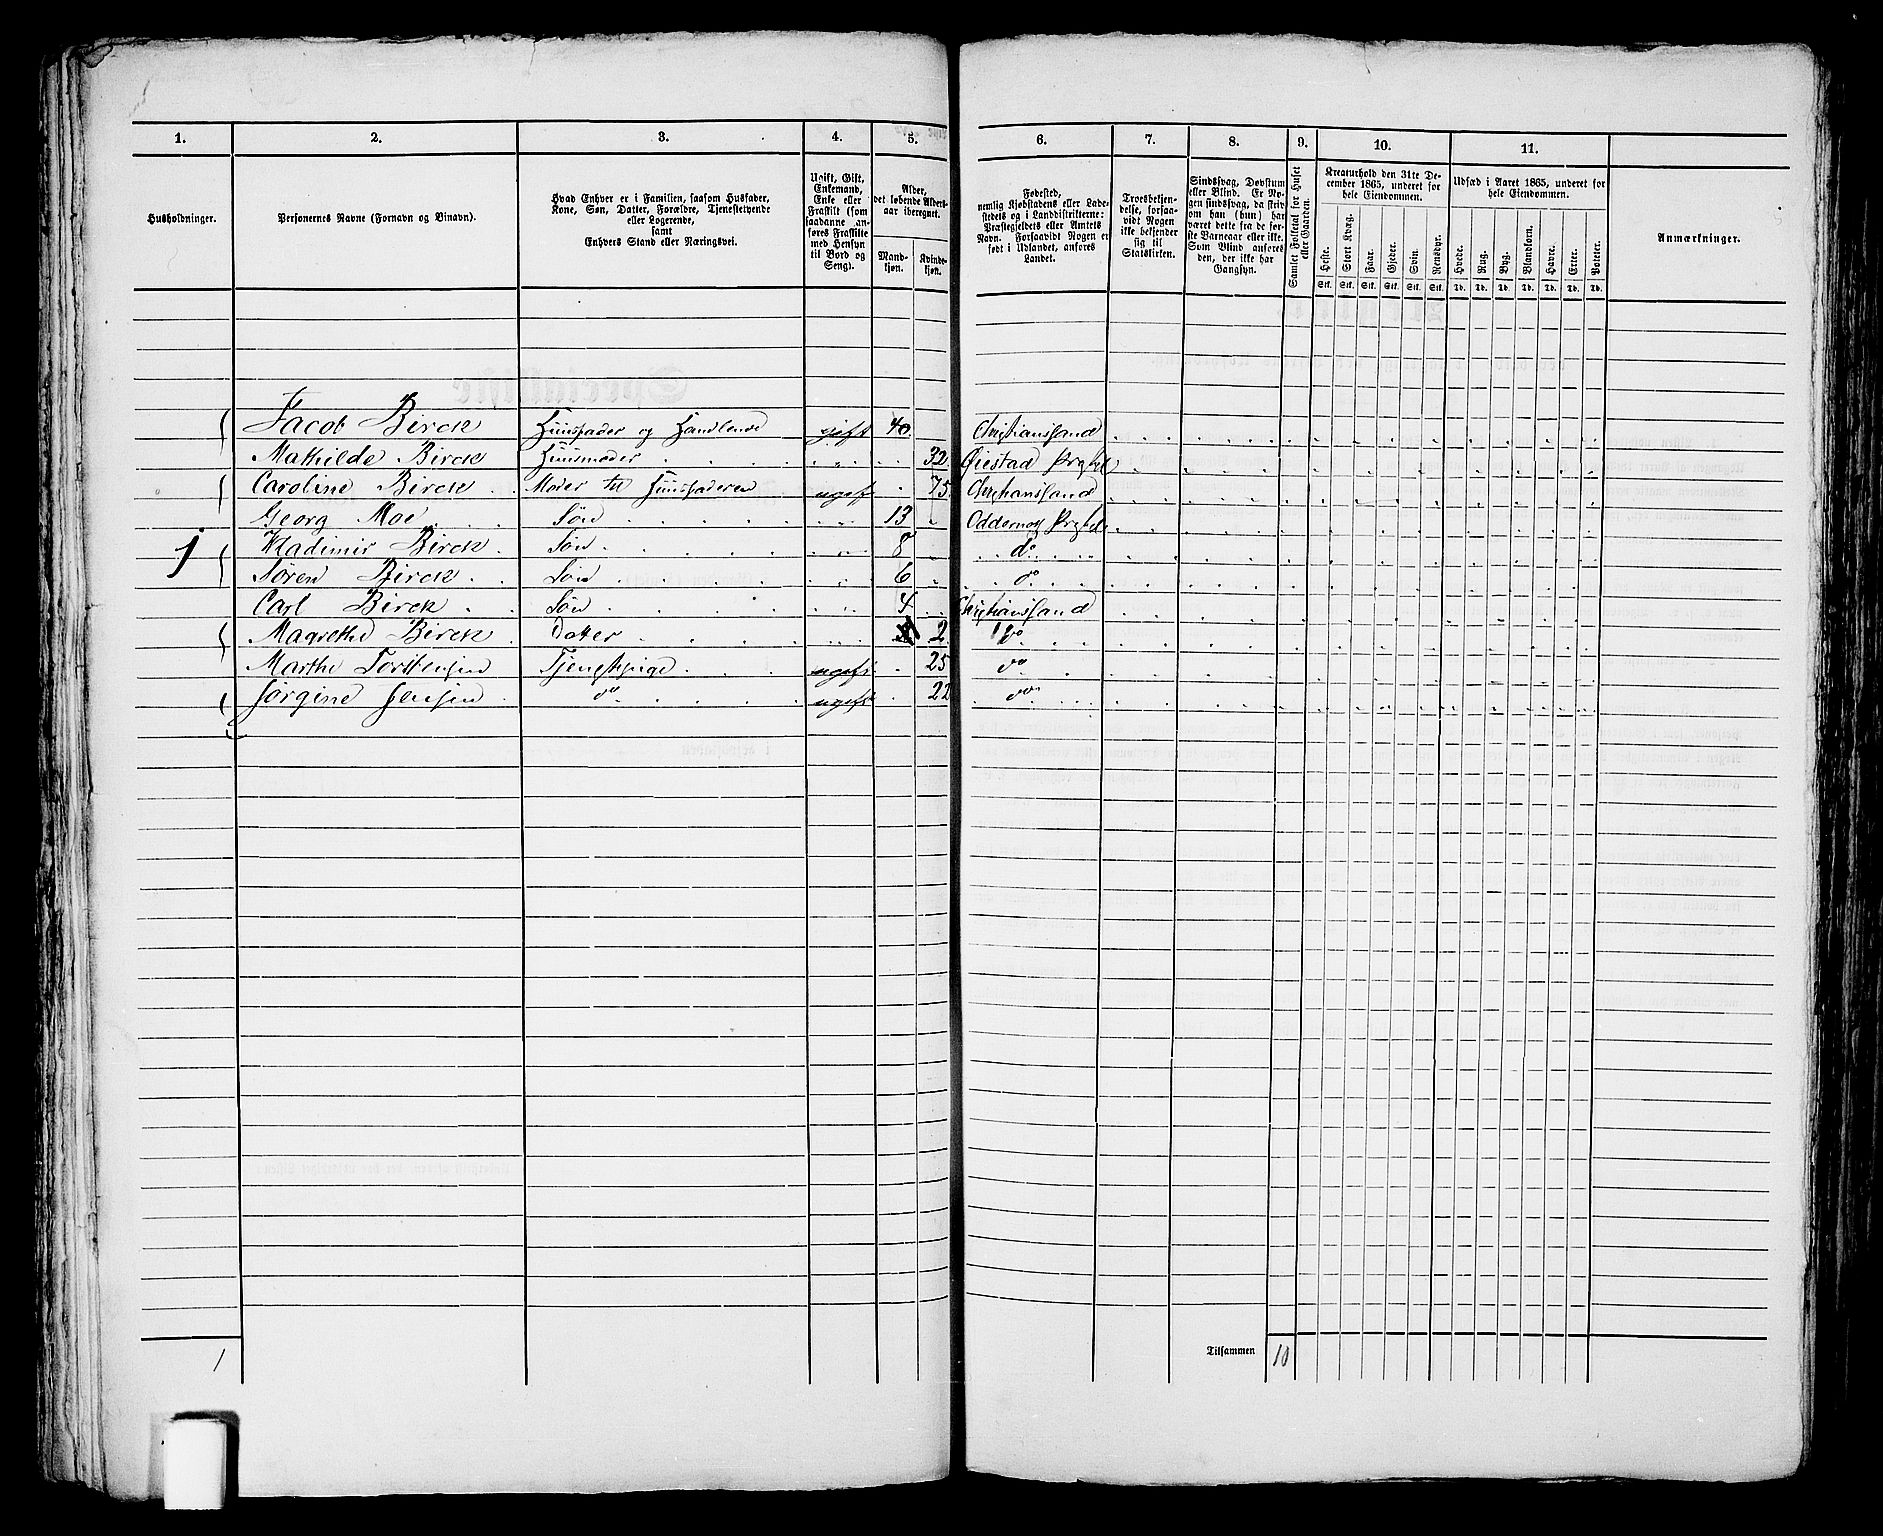 1. 2. 3. 4. 5. 6. 7. 8. 9. 10. 11.
Husholdninger.
Personernes Navne (Fornavn og Binavn).
Hvad Enhver er i Familien, saasom Husfader,
Kone, Søn, Datter, Forældre, Tjenestetyende
eller Logerende,
samt
Enhvers Stand eller Næringsvei.
Ugift, Gift,
Enkemand,
Enke eller
Fraskilt (som
saadanne an-
føres Fraskilte
med Hensyn
til Bord og
Seng).
Alder,
det løbende Alders-
aar iberegnet.
Mand-
kjøn.
Kvinde-
kjøn.
Fødested,
nemlig Kjøbstadens eller Lade-
stedets og i Landdistrikterne:
Præstegjeldets eller Amtets
Navn. Forsaavidt Nogen er
født i Udlandet, anføres
Landet.
Troesbekjen-
delse, forsaa-
vidt Nogen
ikke bekjender
sig til
Statskirken.
Sindssvag, Døvstum
eller Blind. Er No-
gen sindssvag, da skriv
om han (hun) har
været dette fra de før-
ste Barneaar eller ikke.
Som Blind anføres
den, der ikke har
Gangsyn.
Samlet Folketal for Huset
eller Gaarden.
Kreaturhold den 31te De-
cember 1865, underet for
hele Eiendommen.
Heste. Stort Kvæg. Faar. Gjeder. Svin. Rensdyr.
Stk. Stk. Stk. Stk. Stk. Stk.
Udsæd i Aaret 1865, underet for
hele Eiendommen.
Hvede. Rug. Byg. Blandkorn. Havre. Erter. Poteter.
Td. Td. Td. Td. Td. Td. Td.
Anmærkninger.
Jacob Birck Huusfader og Handlende gift 40 Christianssand
Mathilde Birck Huusmoder " 32 Øiestad Prgjel
Caroline Birck Moder til Huusfaderen ugift 75 Christianssand
Georg Moe Søn " 13 Oddernes Prgjel
1 Wladimir Birck Søn " 8 do
Søren Birck Søn " 6 do
Carl Birck Søn " 4 Christianssand
Magrethe Birck Datter " 2 do
Marthe Torstensen Tjenestpige ugift 25 do
Jørgine Jensen do ugift 22 do
1
Tilsammen 10